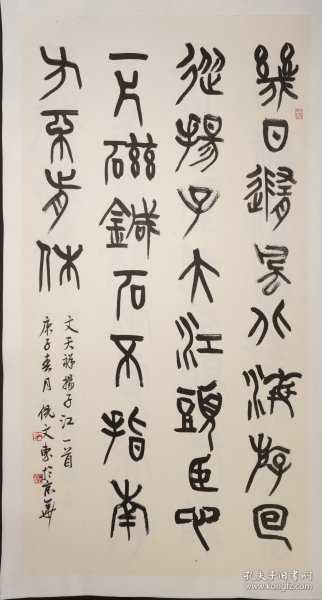 幾日隨風北海游回
從揚子大江頭臣心
一片磁鍼石不指南
方不肯休
文天祥揚子江一首
庚子春月倪文東於京華
孔夫子旧书网